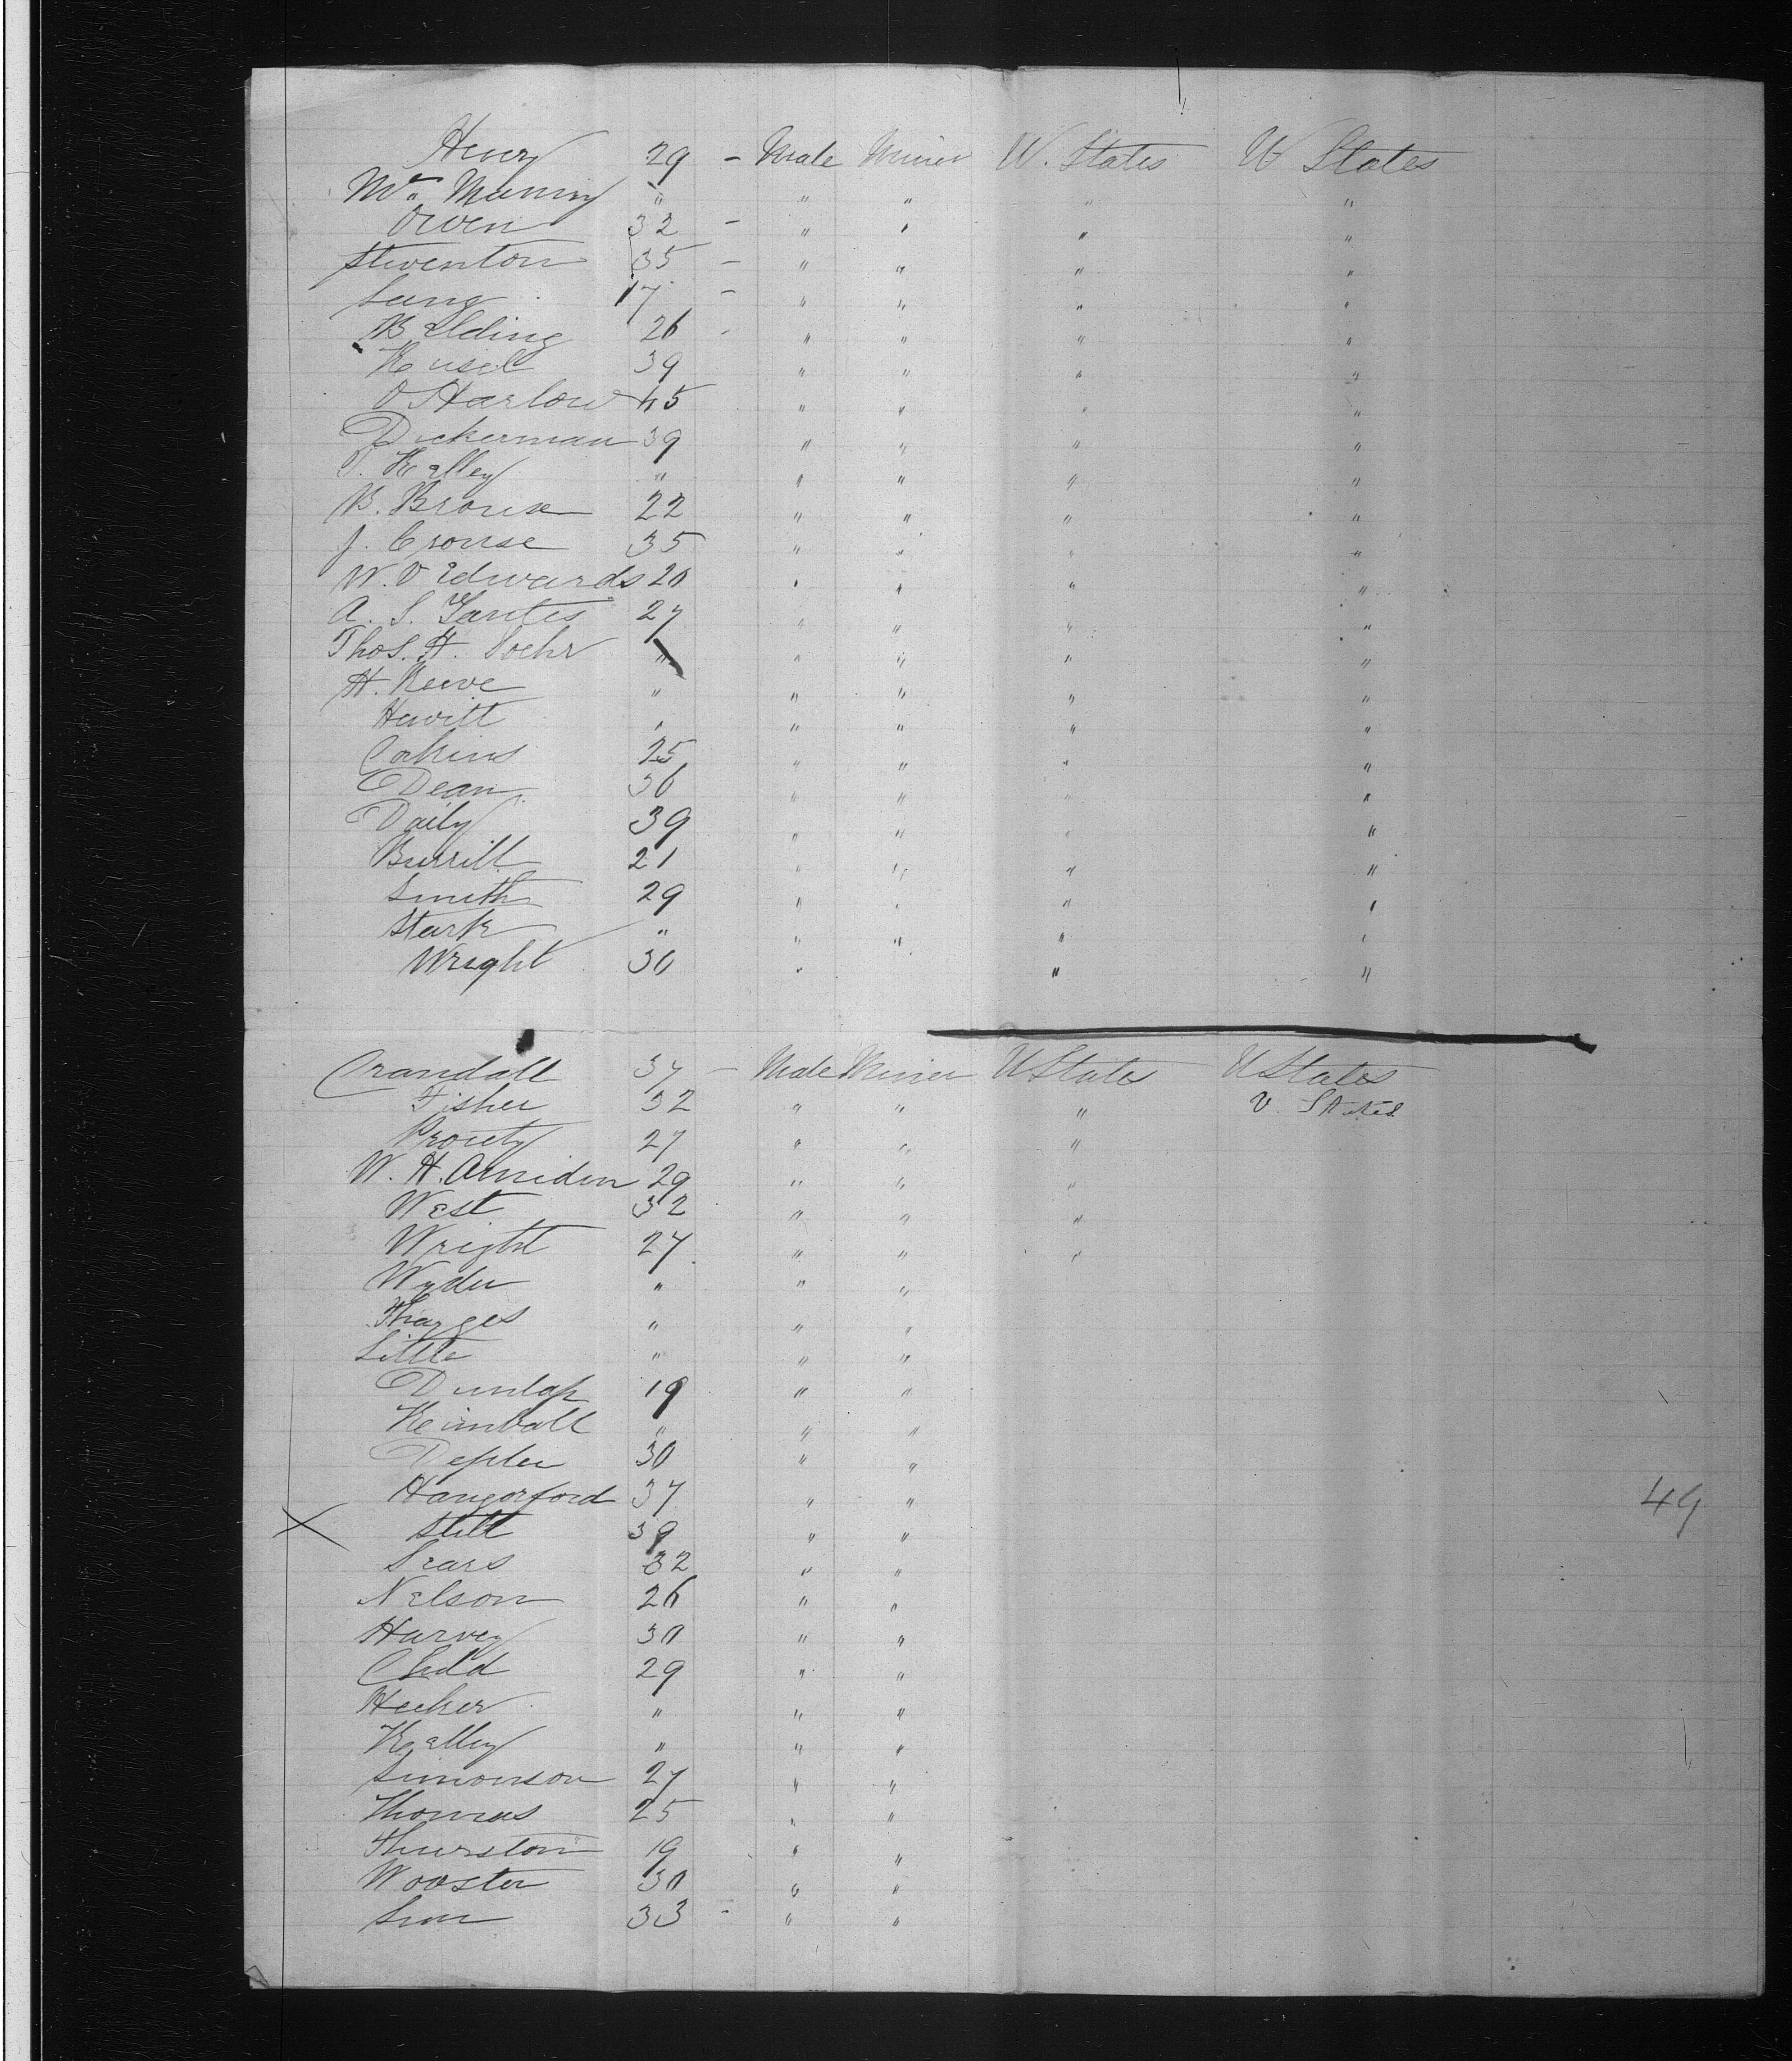 Henry 29 - Male Miner U. States U States
Mr. Munny " " " " "
Owen 32 - " " " "
Stiventon 35 - " " " "
Lang 17 - " " " "
Belding 26 - " " " "
Kusel 39 " " " "
O Harlow 45 " " " "
Dickerman 39 " " " "
T. Kelley " " " " "
B. Brouse 22 " " " "
J. Crouse 35 " " " "
W. O Edwards 20 " " " "
A. S. 27 " " " "
Thos. H. " " " " "
H. Reeve " " " " "
Hewitt " " " " "
Calkins 25 " " " "
Dean 36 " " " "
Daily 39 " " " "
Burrill 21 " " " "
Smith 29 " " " "
Stark " " " " "
Wright 30 " " "
Crandall 37 - Male Miner U States U States
Fisher 32 " " " U. States
Prouty 27 " " "
W. H. Amiden 29 " " "
West 32 " " "
Wright 27 " " "
Wyder " " "
" " "
Little " " "
Dunlap 19 " "
Kimball " " "
Depler 30 " "
Hangorford 37 " " 49
X Still 39 " "
Sears 32 " "
Nelson 26 " "
Harvey 30 " "
Child 29 " "
Hecker " " "
Kelley " " "
Simonson 27 " "
Thomas 25 " "
Thurston 19 " "
Wooster 30 " "
33 - " "